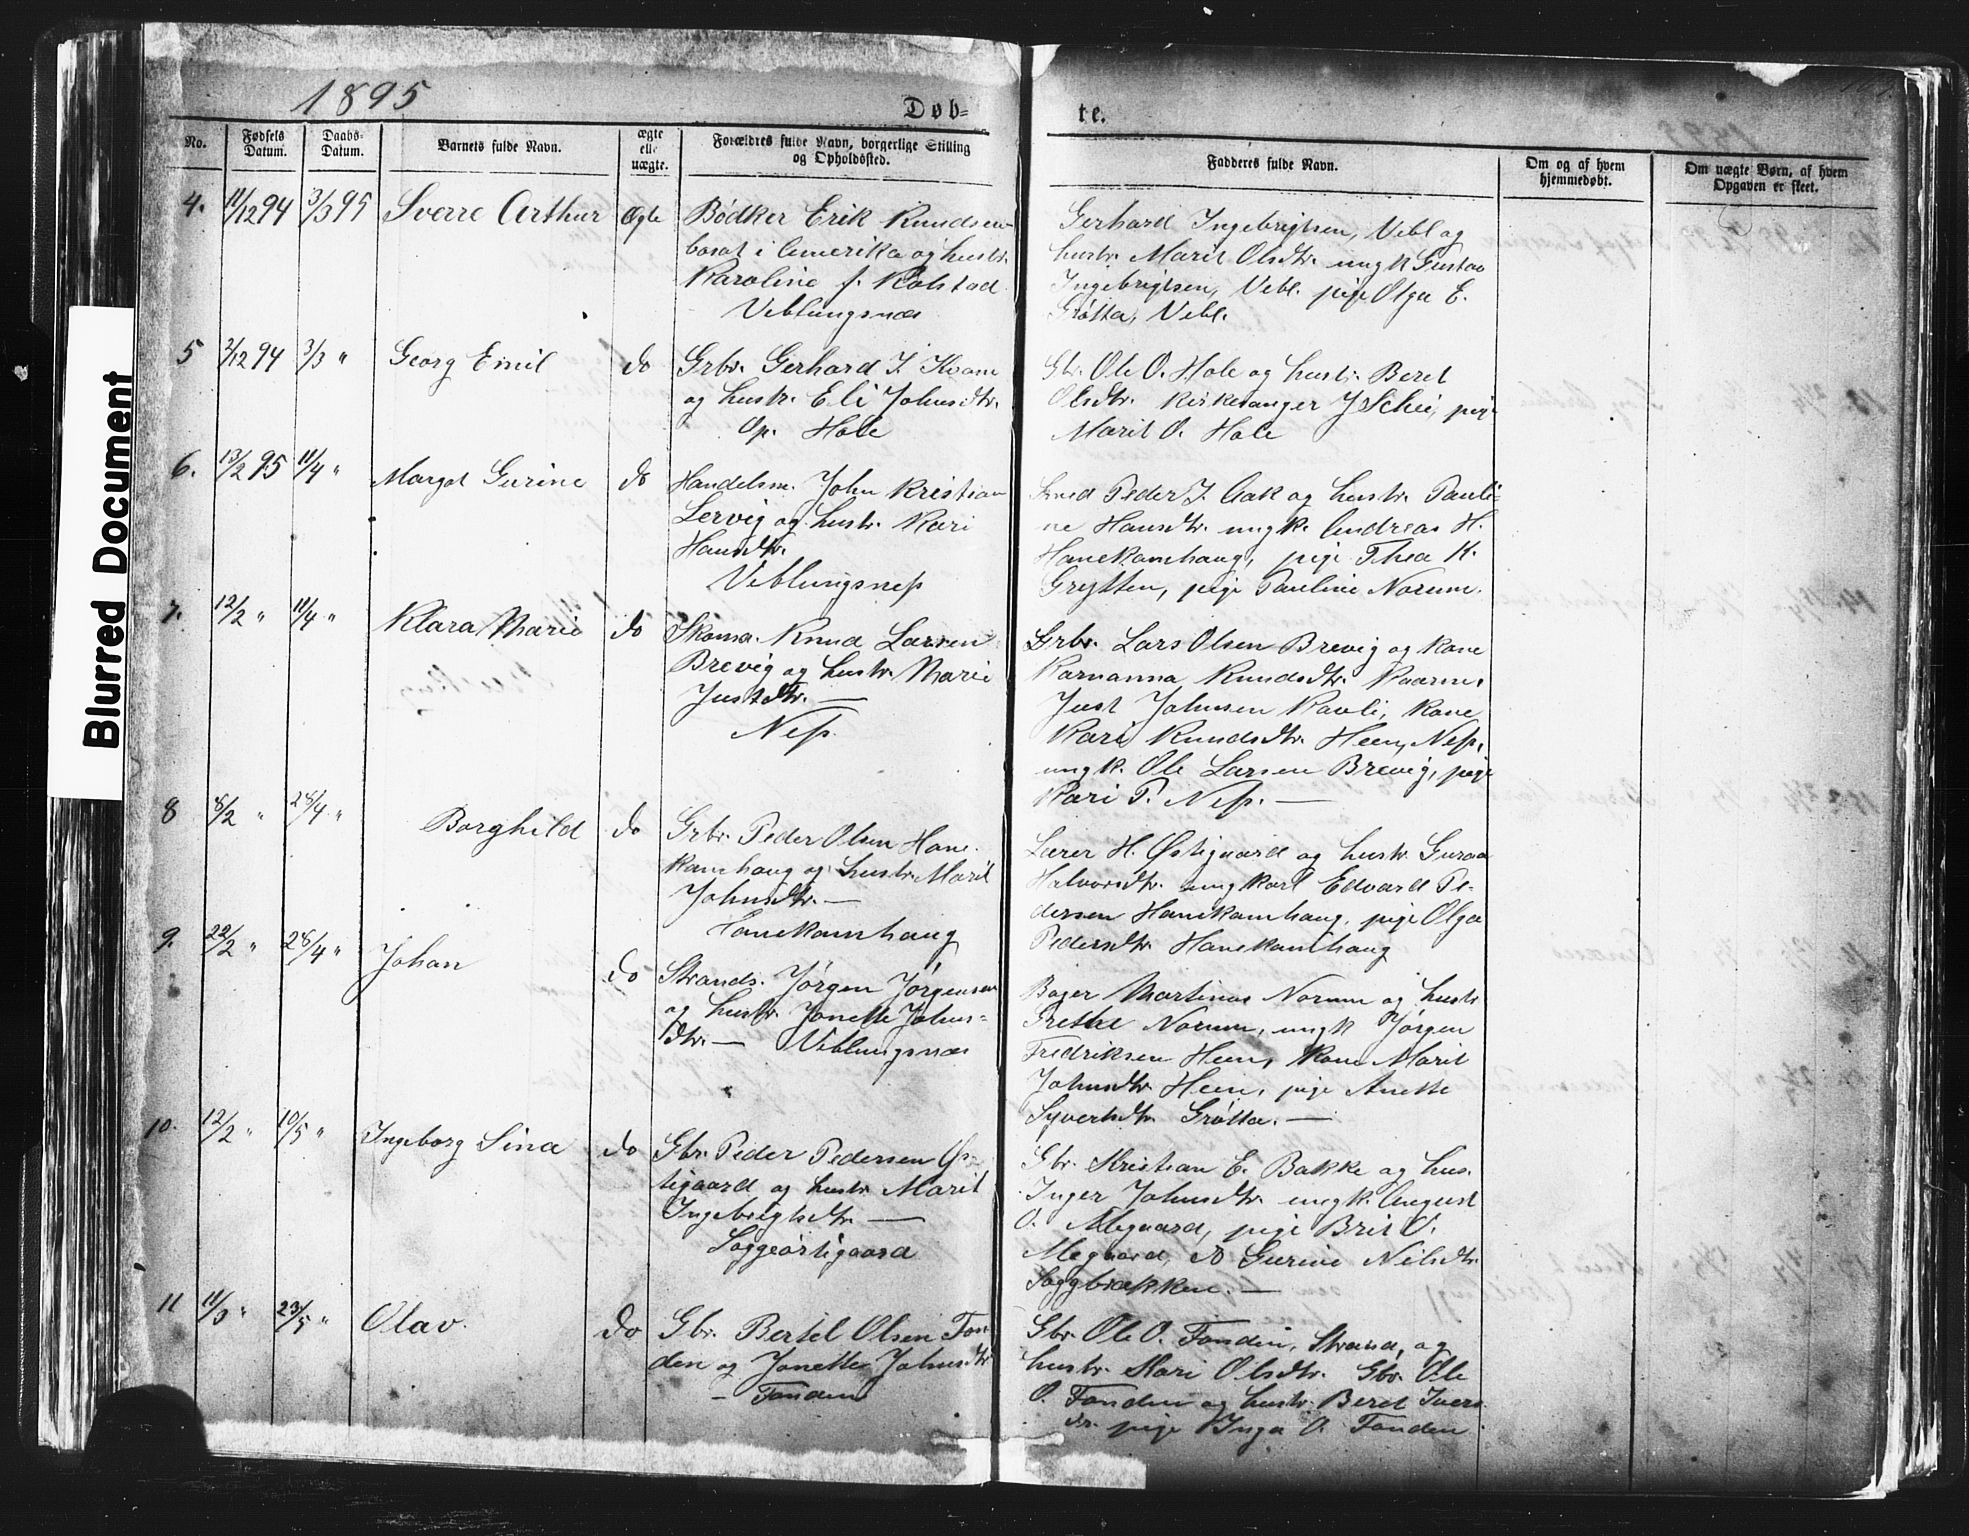 Blurred Document
1895
Døb-
te.
No.
Fødsels Datum.
Daabs-Datum.
Barnets fulde Navn.
ægte elle uægte.
Forældres fulde Navn, borgerlige Stilling og Opholdssted.
Fadderes fulde Navn.
Om og af hvem hjemmedøbt.
Om uægte Børn, af hvem Opgaven er skeet.
4. 11/12 94 3/3 95 Sverre Arthur Ægte
Bødker Erik Knudsen
bosat i Amerika og hustr.
Karoline f. Kolstad
Veblungsnæs
Gerhard Ingebrigtsen, Vebl og
hustr. Marit Olsdtr. ungk Gustav
Ingebrigtsen, Vebl. pige Olga E.
Grøtta, Vebl.
5 2/12 94 3/3 " Georg Emil do
Grbr. Gerhard J. Kvam
og hustr. Eli Johnsdtr.
Op. Hole
Gbr. Ole O. Hole og hustr. Beret
Olsdtr. Kirkesanger J Schei, pige
Marit O. Hole
6. 13/2 95 11/4 " Margot Gurine do
Handelsm. John Kristian
Lervig og hustr. Kari
Hansdtr.
Veblungsness
Smed Peder J. Aak og hustr. Pauli-
ne Hansdtr. ungk. Andreas H.
Hanekamhaug, pige Thea K.
Grytten, pige Pauline Norum.
7. 12/2 " 11/4 " Klara Marie do
Skoma. Knud Larsen
Brevig og hustr. Marie
Justdtr. —
Ness.
Grbr. Lars Olsen Brevig og kone
Karnanna Knudsdtr.
Just Johnsen Kavli, kone
Kari Knudsdtr. Heen, Ness,
ungk. Ole Larsen Brevig, pige
Kari P. Ness. —
8 8/2 " 28/4 " Borghild do
Grbr. Peder Olsen Hane-
kamhaug og hustr. Marit
Johnsdtr. —
Hanekamhaug
Lærer H. Østigaard og hustr. Guraa
Halvorsdtr. ungkarl Edvard Pe-
dersen Hanekamhaug, pige Olga
Pedersdtr. Hanekamhaug
9. 22/2 " 28/4 " Johan do
Strands. Jørgen Jørgensen
og hustr. Jonette Johns-
dtr. — Veblungsnæs
Bager Martinus Norum og hustr
Grethe Norum, ungk Jørgen
Fredriksen Heen, kone Marit
Johnsdtr. Heen, pige Anette
Syvertsdtr. Grøtta. —
10. 12/2 " 10/5 " Ingeborg Lina do
Gbr. Peder Pedersen Øs-
tigaard og hustr. Marit
Ingebrigtsdtr. —
Soggeøstigaard
Gbr. Kristian E. Bakke og hus.
Inger Johnsdtr. ungk. August
O. Megaard, pige Brit O.
Megaard, do Gurine Nilsdtr.
Soggbrekken. —
11 11/3 " 23/5 " Olav. do
Gbr. Bertel Olsen Fon-
den og Jonette Johnsdtr
- Fonden
Gbr. Ole O. Fonden, Strand, og
hustr. Mari Olsdtr. Gbr. Ole
O. Fonden og hustr. Beret Ivers
dr. pige Inga O. Fonden